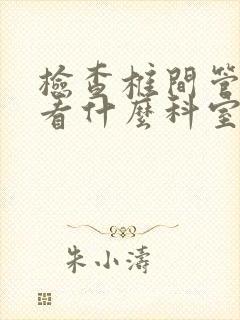 檢查椎間管
看什麼科室
朱小濤